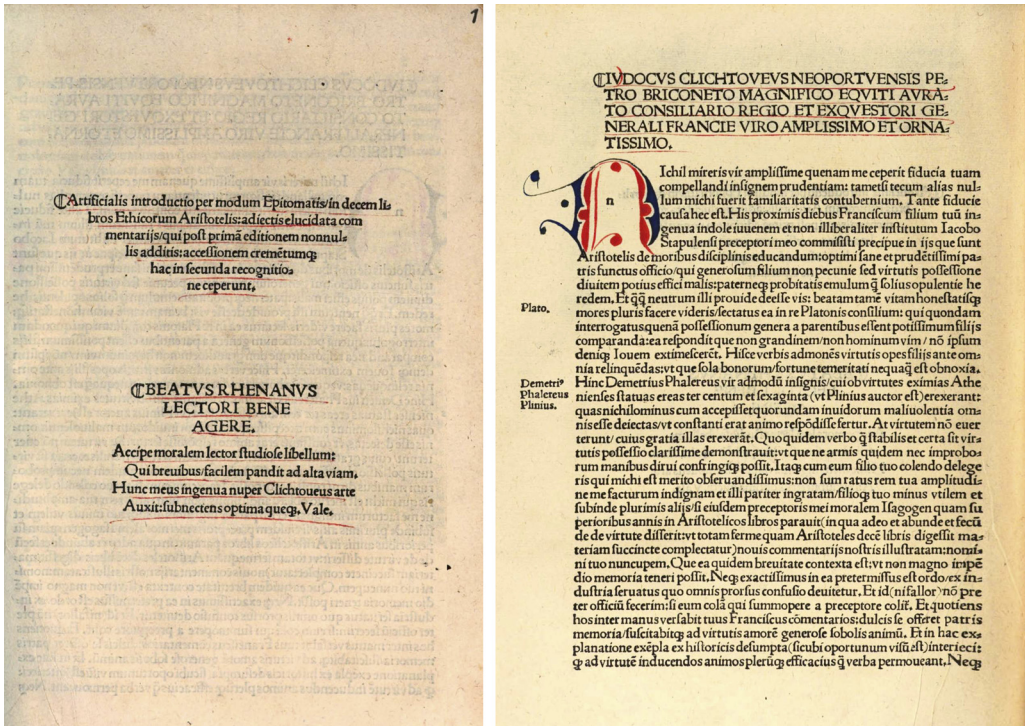 1
⁋Artificialis introductio per modum Epitomatis/in decem li⸗
bros Ethicorum Aristotelis: adiectis elucidata com
mentarijs/qui post primā editionem nonnul⸗
lis additis: accessionem cremētumqꝫ
hac in secunda recognitio⸗
ne ceperunt.
⁋BEATVS RHENANVS
LECTORI BENE
AGERE.
Accipe moralem lector studiose libellum:
Qui breuibus/facilem pandit ad alta viam.
Hunc meus ingenua nuper Clichtoueus arte
Auxit: subnectens optima queqꝫ. Vale.
⁋IVDOCVS CLICHTOVEVS NEOPORTVENSIS PE⸗
TRO BRICONETO MAGNIFICO EQVITI AVRA⸗
TO CONSILIARIO REGIO ET EXQVESTORI GE⸗
NERALI FRANCIE VIRO AMPLISSIMO ET ORNA⸗
TISSIMO.
n
Ichil miteris vir amplissime quenam me ceperit fiducia tuam
compellandi insignem prudentiam: tametsi tecum alias nul⸗
lum michi fuerit familiaritatis contubernium. Tante fiducie
causa hec est. His proximis diebus Franciscum filium tuū in⸗
genua indole iuuenem et non illiberaliter institutum Iacobo
Stapulensi preceptori meo commisisti precipue in ijs que sunt
Aristotelis de moribus disciplinis educandum: optimi sane et prudētissimi pa⸗
tris functus officio/qui generosum filium non pecunie sed virtutis possessione
diuitem potius effici malis: paterneqꝫ probitatis emulum q̄ solius opulentie he
redem. Et q̄q̄ neutrum illi prouide deesse vis: beatam tamē vitam honestatisqꝫ
mores pluris facere videris/sectatus ea in re Platonis consilium: qui quondam
Plato.
interrogatus quenā possessionum genera a parentibus essent potissimum filijs
comparanda: ea respondit que non grandinem/non hominum vim/nō ipsum
deniqꝫ Iouem extimescerēt. Hisce verbis admonēs virtutis opes filijs ante om⸗
nia relinquēdas: vt que sola bonorum/fortune temeritati nequaq̄ est obnoxia.
Demetri⁹
Phalereus
Plinius.
Hinc Demetrius Phalereus vir admodū insignis/cui ob virtutes eximias Athe
nienses statuas ereas ter centum et sexaginta (vt Plinius auctor est) erexerant:
quas nichilominus cum accepisset quorundam inuidorum maliuolentia om⸗
nis esse deiectas/vt constanti erat animo respōdisse fertur. At virtutem nō euer
terunt/cuius gratia illas erexerāt. Quo quidem verbo q̄ stabilis et certa sit vir⸗
tutis possessio clarissime demonstrauit: vt que ne armis quidem nec improbo⸗
rum manibus dirui confringiqꝫ possit. Itaqꝫ cum eum filio tuo colendo delege
ris qui michi est merito obseruandissimus: non sum ratus rem tua amplitudi⸗
ne me facturum indignam et illi pariter ingratam/filioqꝫ tuo minus vtilem et
subinde plurimis alijs/si eiusdem preceptoris mei moralem Isagogen quam su
perioribus annis in Aristotelicos libros parauit (in qua adeo et abunde et fecū
de de virtute disserit: vt totam ferme quam Aristoteles decē libris digessit ma⸗
teriam succincte complectatur) nouis commentarijs nostris illustratam: nomi⸗
ni tuo nuncupem. Que ea quidem breuitate contexta est: vt non magno impē
dio memoria teneri possit. Neqꝫ exactissimus in ea pretermissus est ordo/ex in⸗
dustria seruatus quo omnis prorsus confusio deuitetur. Et id (ni fallor) nō pre
ter officiū fecerim: si eum colā qui summopere a preceptore colit̄. Et quotiens
hos inter manus versabit tuus Franciscus cōmentarios: dulcis se offeret patris
memoria/suscitabitqꝫ ad virtutis amorē generose sobolis animū. Et in hac ex⸗
planatione exēpla ex historicis desumpta (sicubi oportunum visū est) intereci⸗
q̄ ad virtutē inducendos animos plerūqꝫ efficacius q̄ verba permoueant. Neqꝫ